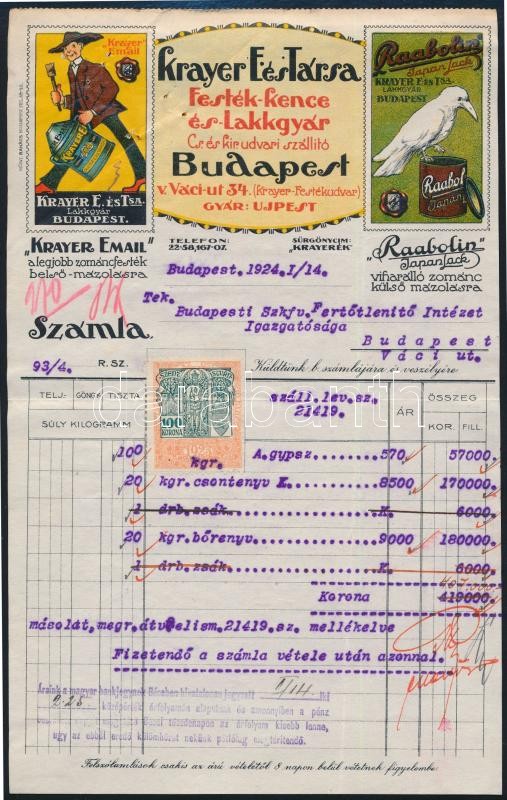 "Krayer Email"
KRAYER E. ÉS TSA.
Lakkgyár
BUDAPEST.
Krayer E és Társa
Festék-kence
és-Lakkgyár
Cs. és kir udvari szállító
Budapest
v. Váci-ut 34. (Krayer-Festékudvar)
GYÁR: UJPEST
Raabolin
Japan Lack
KRAYER E. ÉS TSA.
LAKKGYÁR
BUDAPEST
Raabol
Japan
"KRAYER EMAIL"
a legjobb zománcfesték
belső-mázolásra
TELEFON:
22-58, 167-07.
SÜRGÖNYCIM:
"KRAYERÉK"
"Raabolin"
Japan Lack
viharálló zománc
külső mázolásra
Budapest, 1924. I/14.
Tek.
Budapesti Szkfv. Fertőtlenitő Intézet
Igazgatósága
Budapest
Váci ut.
Számla
93/4. R. SZ.
Küldtünk b. számlájára és veszélyére
TELJ- GÖNGY TISZTA
SÚLY KILOGRAMM
száll.lev.sz.
21419.
ÁR
ÖSSZEG
KOR. FILL.
100 KORONA
100 kgr. A.gypsz 570, 57000.
20 kgr.csontenyv K. 8500 170000.
1 drb.zsák. K. 6000.
20 kgr.bőrenyv. 9000 180000.
1 drb.zsák. K. 6000.
407.000.
Korona 419000.
másolat,megr.átvelism.21419.sz. mellékelve
Fizetendő a számla vétele után azonnal.
Áraink a magyar bankjegynek Bécsben hivatalosan jegyzett I/14. iki
2.28 középárfolyamán alapulnak és amennyiben a pénz
árfolyam kisebb lenne,
úgy az ebből eredő különbözet nekünk pótlólag megtérítendő.
Felszólamlások csakis az áru vételétől 8 napon belül vétetnek figyelembe.
darabanth